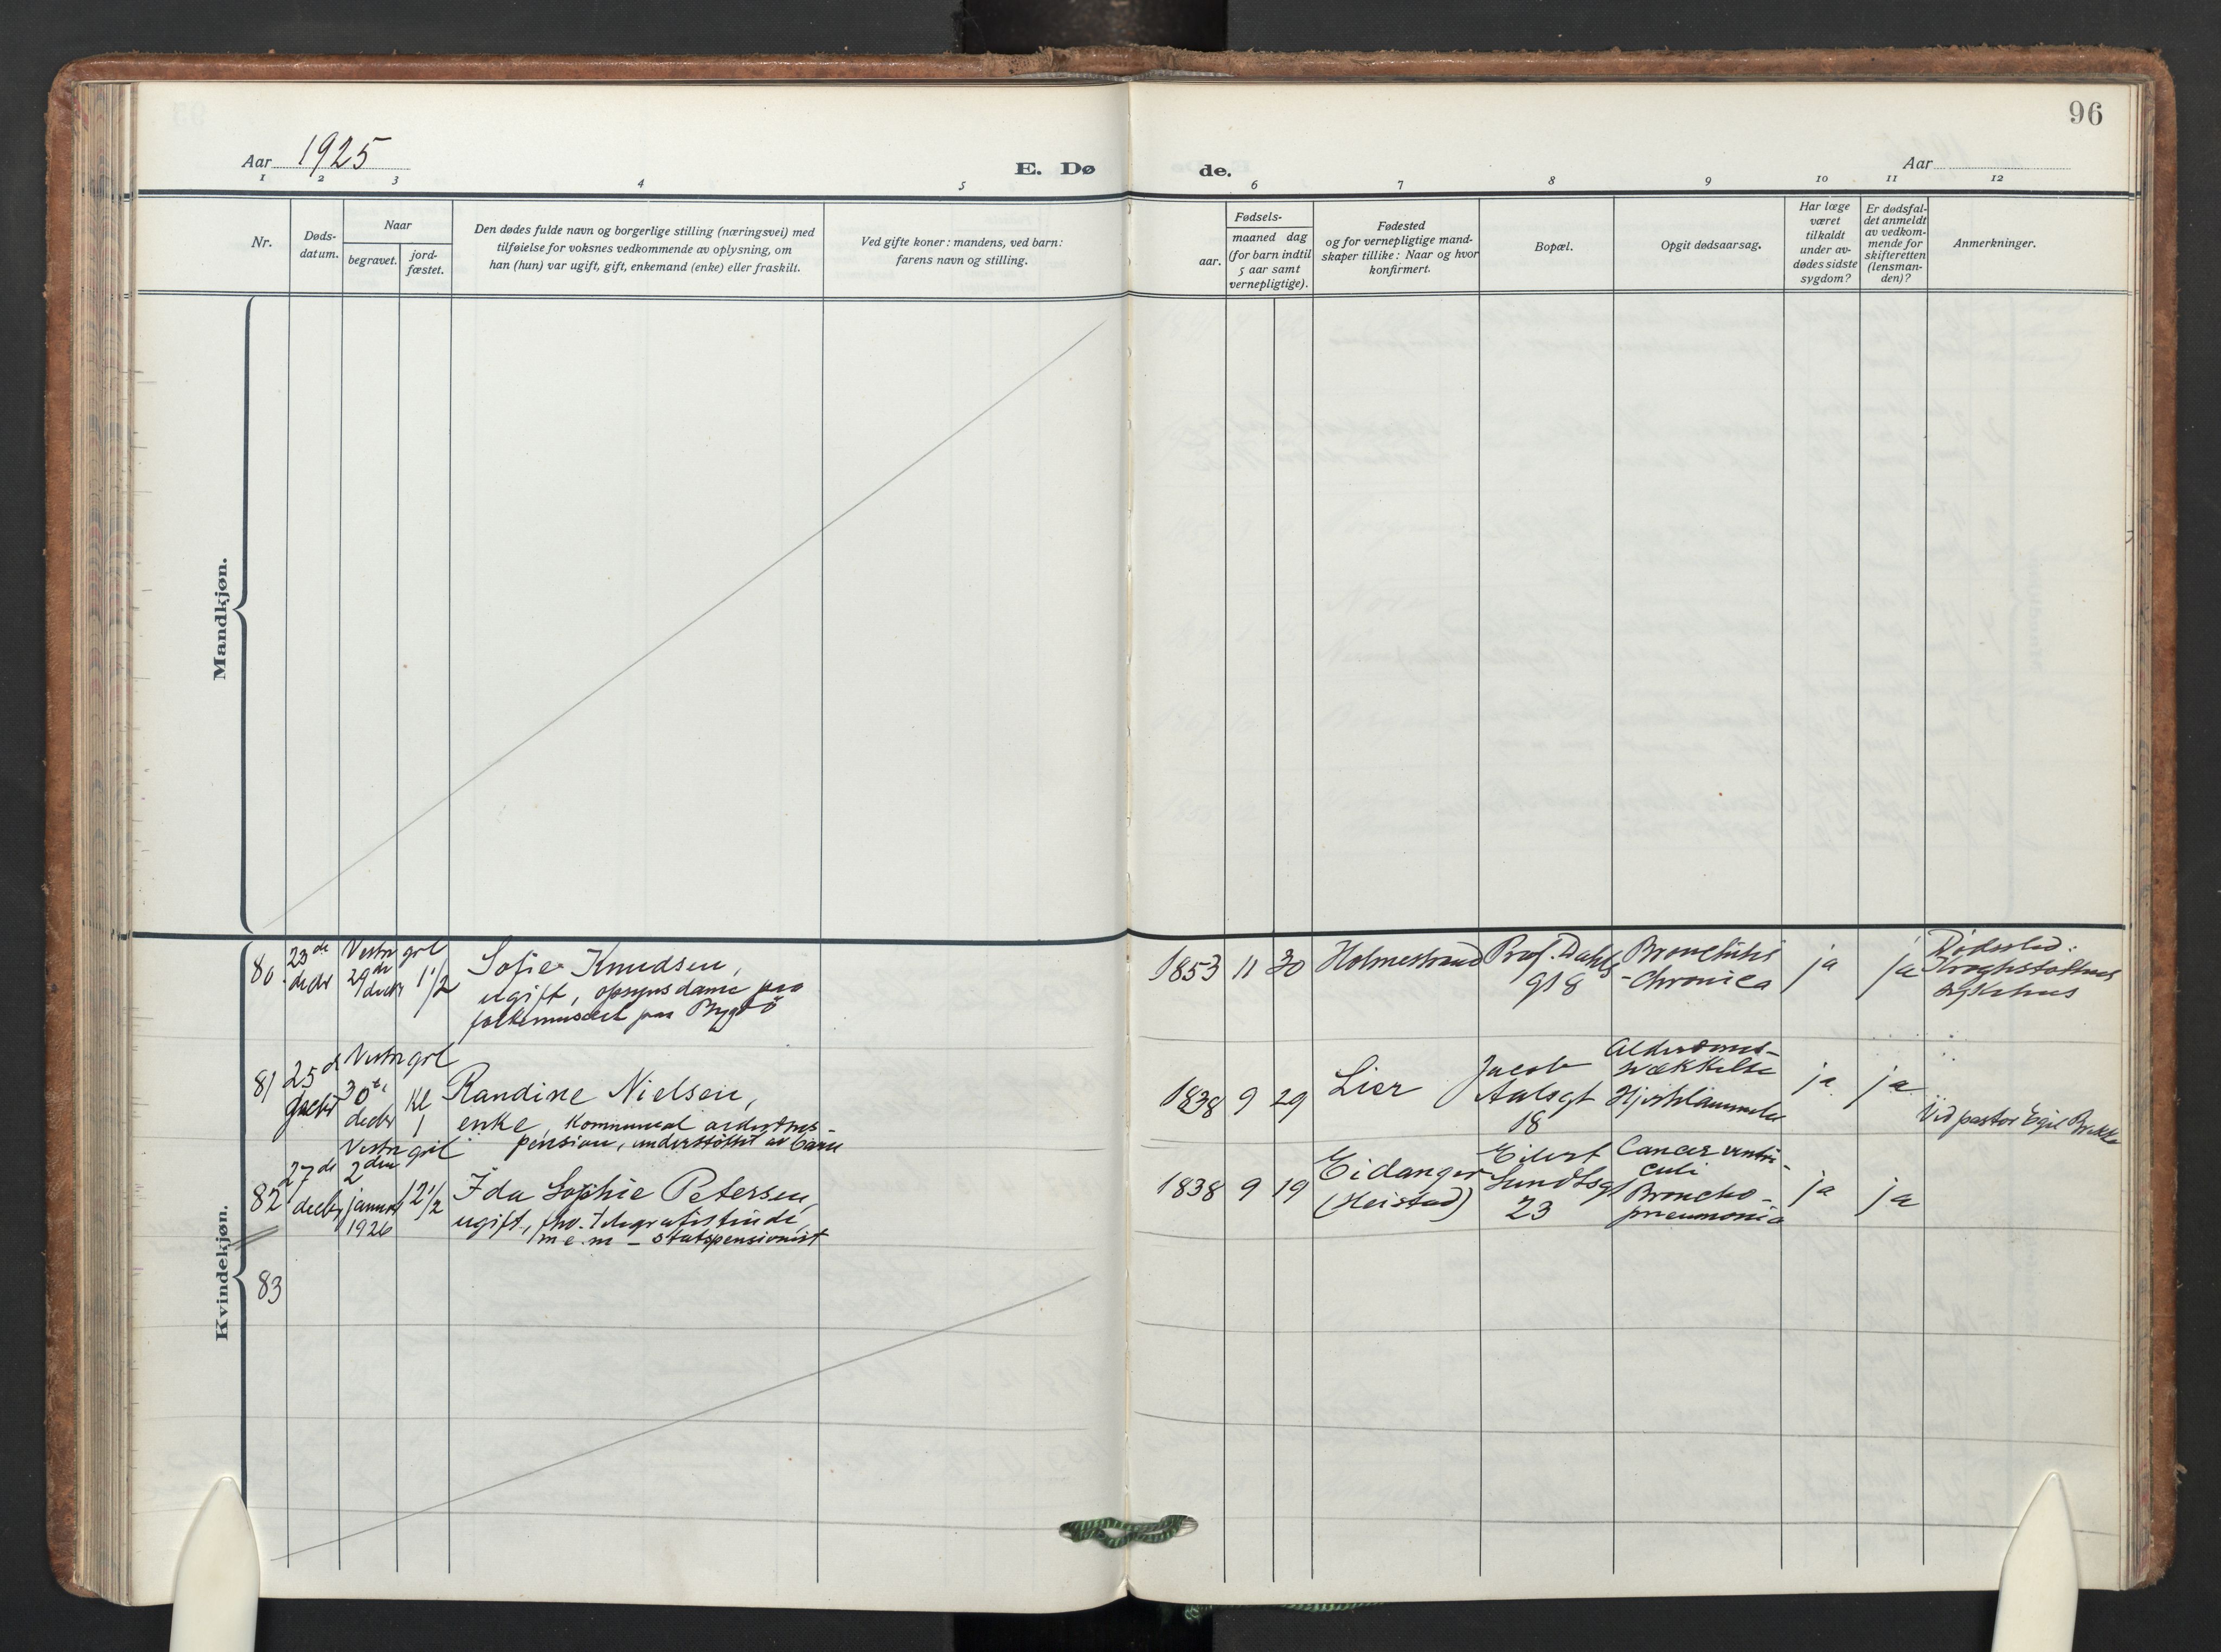 96
Aar 1925
E. Dø
de.
Aar
1 2 3 4 5 6 7 8 9 10 11 12
Nr.
Døds-
datum.
Naar
begravet.
jord-
fæstet.
Den dødes fulde navn og borgerlige stilling (næringsvei) med
tilføielse for voksnes vedkommende av oplysning, om
han (hun) var ugift, gift, enkemand (enke) eller fraskilt.
Ved gifte koner: mandens, ved barn:
farens navn og stilling.
Fødsels-
aar.
maaned dag
(for barn indtil
5 aar samt
vernepligtige).
Fødested
og for vernepligtige mand-
skaper tillike: Naar og hvor
konfirmert.
Bopæl.
Opgit dødsaarsag.
Har læge
været
tilkaldt
under av-
dødes sidste
sygdom?
Er dødsfal-
det anmeldt
av vedkom-
mende for
skifteretten
(lensman-
den)?
Anmerkninger.
Mandkjøn.
Kvindekjøn.
80
23de
decbr
Vestre grl
29de
decbr
1 1/2
Sofie Knudsen,
ugift, opsynsdame paa
folkemuseet paa Bygdö
1853 11 30
Holmestrand
Prof. Dahls
gt 8
Bronchitis
-Chronica
ja
ja
Dødssted:
Kroghstøttens
sykehus
81
25d
decbr
Vestre grl
30te
decbr
Kl
1
Randine Nielsen,
enke, kommunal alderdoms-
pension, understöttet av barn
1838 9 29
Lier
Jacob
Aalsgt
18
Alderdoms-
svækkelse
Hjertelammelse
ja
ja
Ved pastor Egil Brekke
82
27de
decbr
Vestre grl
2den
januar
1926
12 1/2
Ida Sophie Petersen,
ugift, fhv. telegrafistinde,
m e. m - statspensionist
1838 9 19
Eidanger
(Heistad)
Eilert
Sundtsgt
23
Cancer ventri-
culi
Broncho-
pneumonia
ja
ja
83